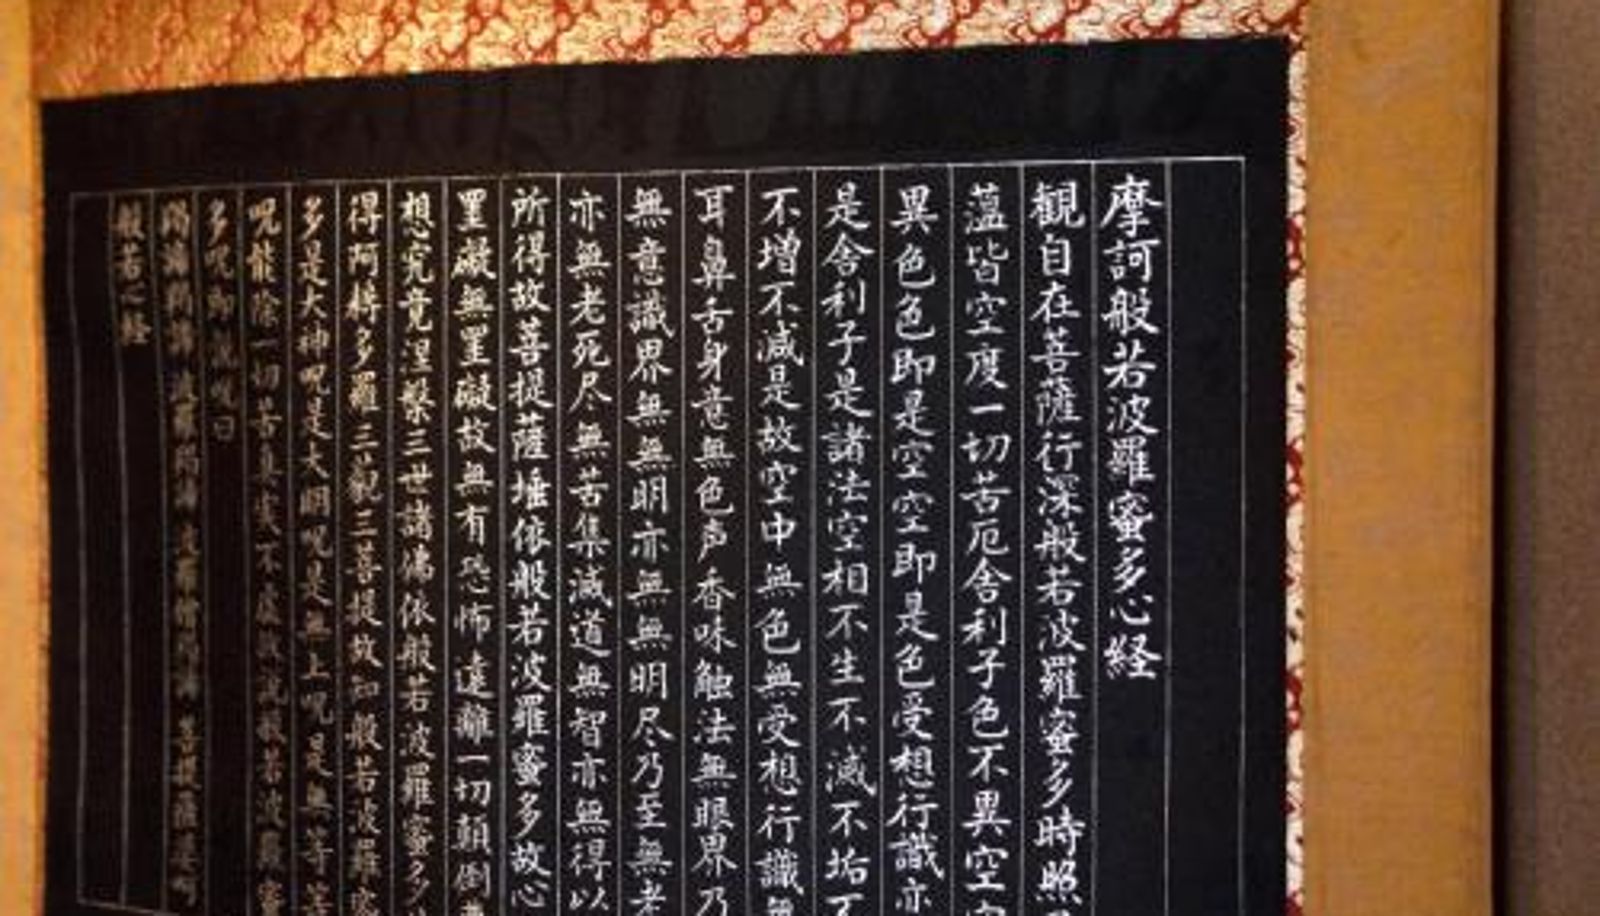 摩訶般若波羅蜜多心経
観自在菩薩行深般若波羅蜜多時照
蘊皆空度一切苦厄舎利子色不異空空
異色色即是空空即是色受想行識亦
是舎利子是諸法空相不生不滅不垢不
不増不減是故空中無色無受想行識無
耳鼻舌身意無色声香味触法無眼界乃
無意識界無無明亦無無明尽乃至無老
亦無老死尽無苦集滅道無智亦無得以
所得故菩提薩埵依般若波羅蜜多故心
罣礙無罣礙故無有恐怖遠離一切顛倒
想究竟涅槃三世諸佛依般若波羅蜜多
得阿耨多羅三藐三菩提故知般若波羅蜜
多是大神呪是大明呪是無上呪是無等等
呪能除一切苦真実不虚故説般若波羅蜜
多呪即説呪曰
羯諦羯諦 波羅羯諦 波羅僧羯諦 菩提薩婆訶
般若心経